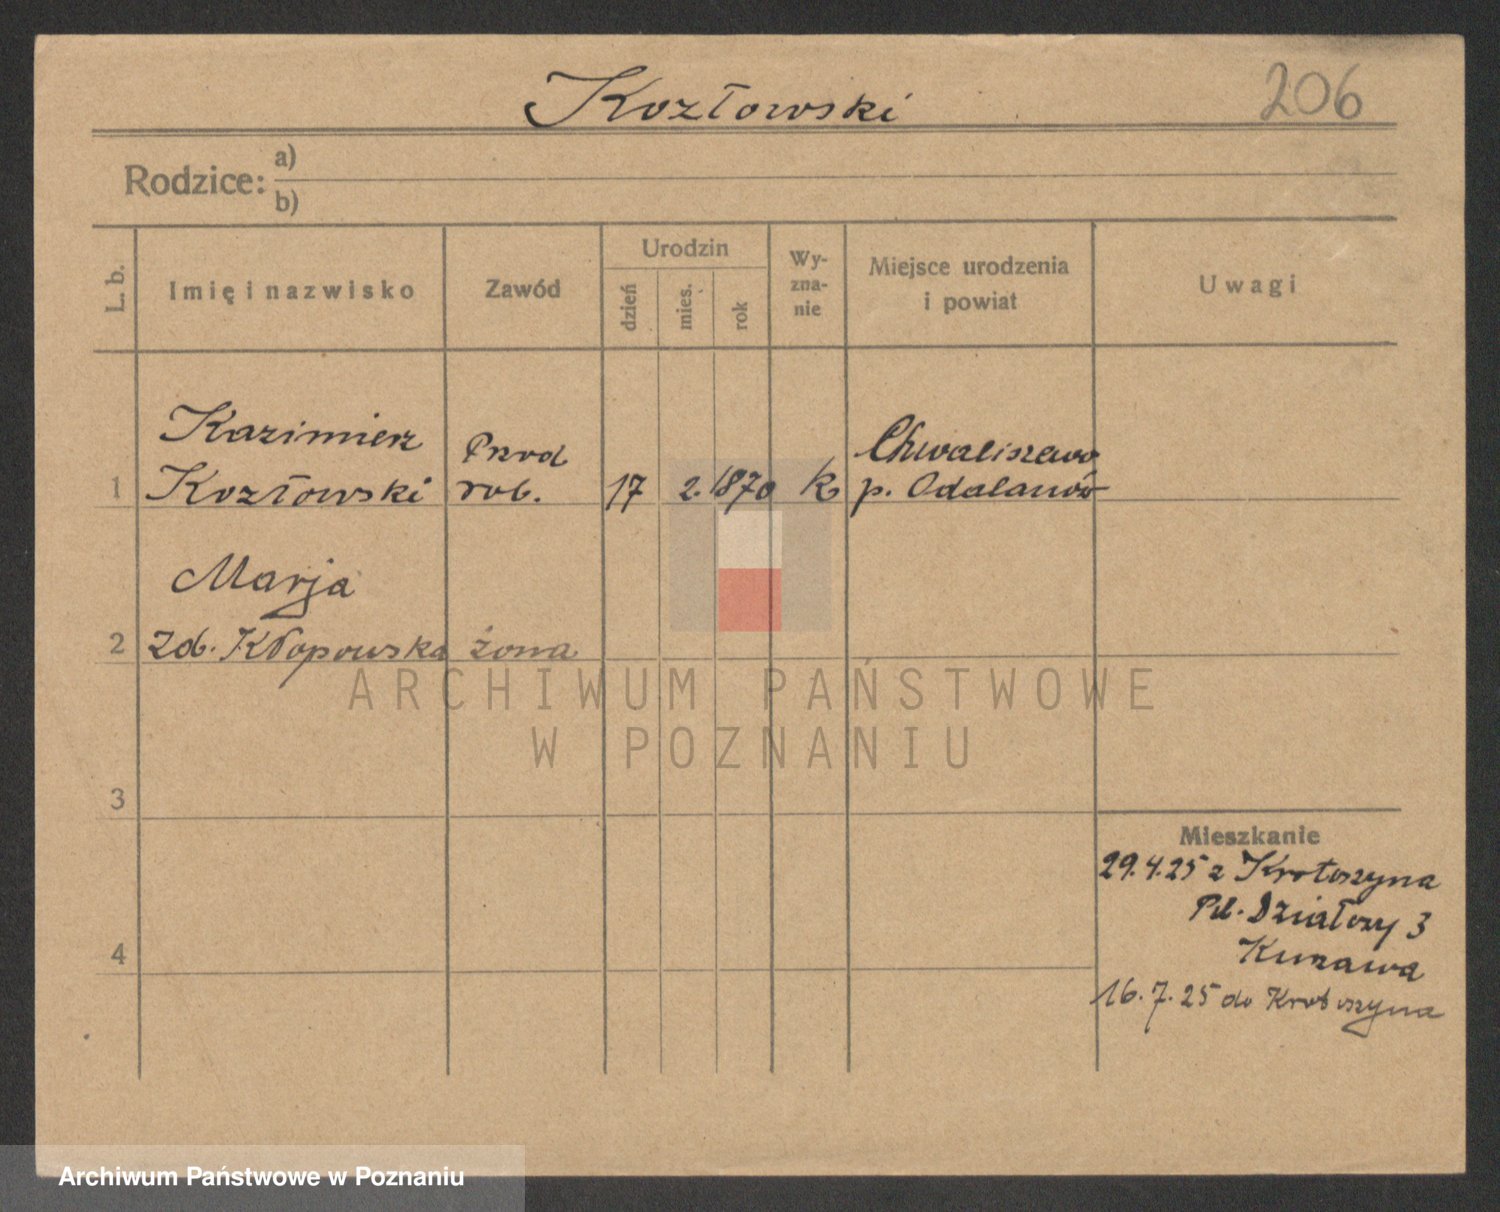 Kozłowski
206
Rodzice:
a)
b)
L. b.
Imię i nazwisko
Zawód
Urodzin
dzień
mies.
rok
Wy-
zna-
nie
Miejsce urodzenia
i powiat
Uwagi
Kazimierz
Kozłowski
Przod
rob.
1
17
2.
1870
k
Chwaliszewo
p. Odalanów
Marja
2
Zd. Kłopowska
żona
3
4
Mieszkanie
29.4.25 z Krotoszyna
Pl. Działowy 3
Kurzawa
16.7.25 do Krotoszyna
ARCHIWUM PAŃSTWOWE
W POZNANIU
Archiwum Państwowe w Poznaniu